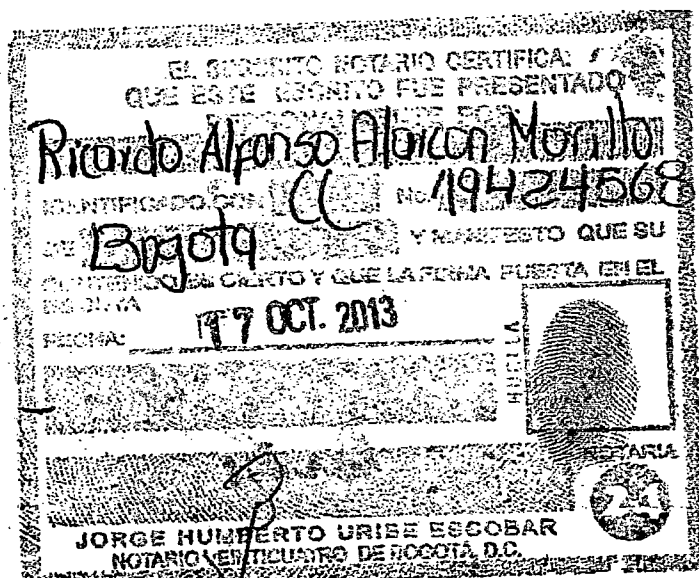 EL SUSCRITO NOTARIO CERTIFICA:
QUE ESTE ESCRITO FUE PRESENTADO
Ricardo Alfonso Alarcon Morillo
IDENTIFICADO CON CC No. 19424568
DE Bogota Y MANIFESTO QUE SU
CONTENIDO ES CIERTO Y QUE LA FIRMA PUESTA EN EL
ES SUYA
FECHA: 17 OCT. 2013
HUELLA
NOTARIA
24
JORGE HUMBERTO URIBE ESCOBAR
NOTARIO VEINTICUATRO DE BOGOTÁ, D.C.